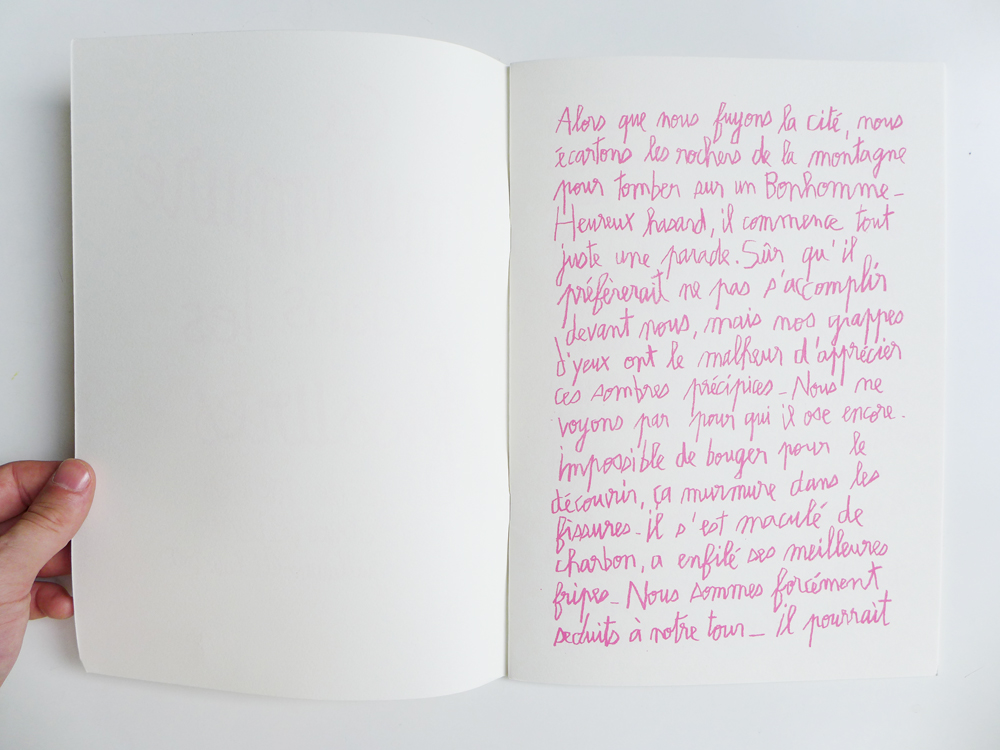 Alors que nous fuyons la cité, nous
écartons les rochers de la montagne
pour tomber sur un Bonhomme_
Heureux hasard, il commence tout
juste une parade. Sûr qu'il
préfèrerait ne pas s'accomplir
devant nous, mais nos grappes
d'yeux ont le malheur d'apprécier
ces sombres précipices_ Nous ne
voyons par pour qui il ose encore.
impossible de bouger pour le
découvrir, ça murmure dans les
fissures_ il s'est maculé de
charbon, a enfilé ses meilleures
fripes_ Nous sommes forcément
seduits à notre tour_ il pourrait